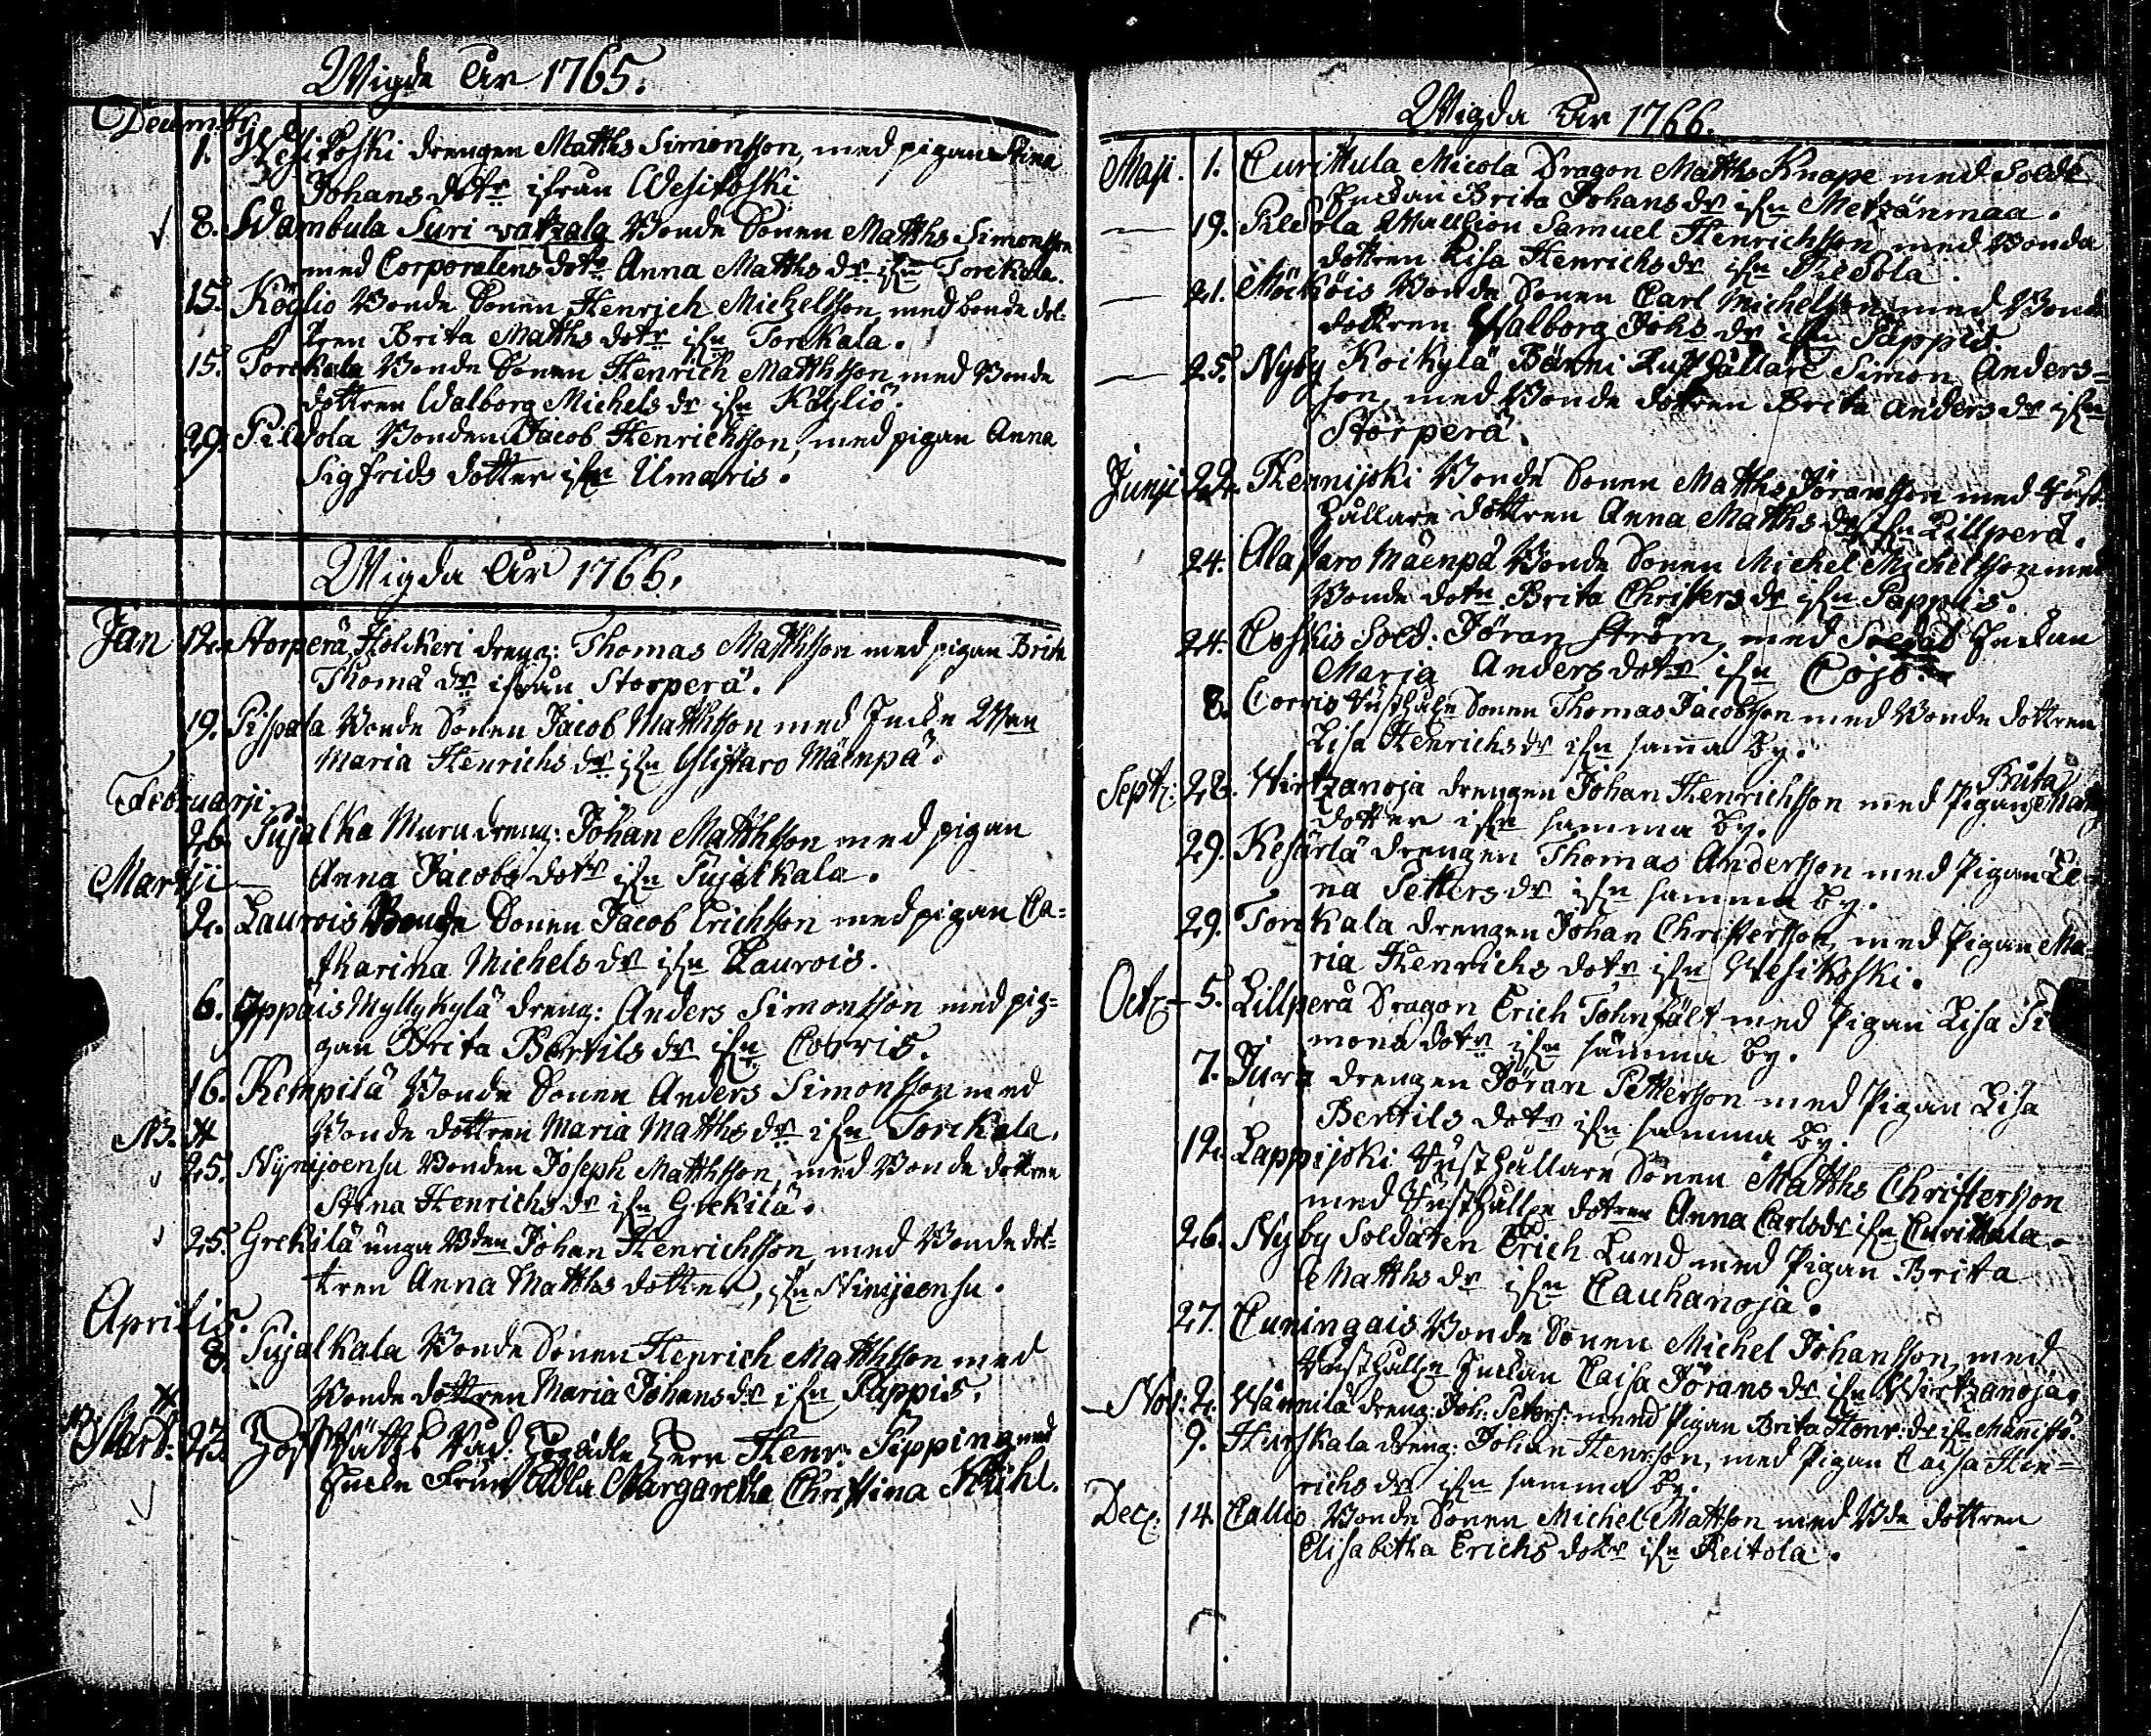 Wigda År 1765.
Decembr:
1. Wesikoski drengen Matths Simonsson, med pigan Stina
Johans dotr ifrån Wesikoski
8. Wambula Suri vatzala Bonde Sonen Matths Simonsson
med Corporalens dotr Anna Matths dr ifn Torckala.
15. Köylio Bonde Sonen Henrich Michelsson, med bonde dot-
tren Brita Matths dotr ifn Torckala.
15. Torckala Bonde Sonen Henrich Matthsson med Bonde
dottren Walborg Michels dr ifn Köyliö.
29. Pildola Bonden Jacob Henrichsson, med pigan Anna
Sigfrids dotter ifn Ilmaris.
Wigda År 1766.
Jan 12. Storperä Holckeri dreng: Thomas Matthsson med pigan Brita
Thomä dr ifrån Storperä.
19. Pispala Bonde Sonen Jacob Matthsson med Enckn
Maria Henrichs dr ifn Ylistaro Mäenpä.
Februarji
26. Pujalka Muru dreng: Johan Matthsson med pigan
Anna Jacobs dotr ifn Pujalkala.
Martji
2. Laurois Bonde Sonen Jacob Erichsson med pigan Ca-
tharina Michels dr ifn Laurois.
6. Yppäis Myllykylä dreng: Anders Simonsson med pi-
gan Brita Bertils dr ifn Corris.
16. Kempilä Bonde Sonen Anders Simonsson med
Bonde dottren Maria Matths dr ifn Torckala.
NB.
25. Nijnijoensu Bonden Joseph Matthsson, med Bonde dottren
Stina Henrichs dr ifn Grekilä.
25. Grekilä unga Bden Johan Henrichsson, med Bonde dot-
tren Anna Matths dotter, ifn Ninijoensu.
Aprilis.
8. Pujalkala Bonde Sonen Henrich Matthsson med
Bonde dottren Maria Johans dr ifn Pappis.
Mart: 23. Hofrätts Råd. Högädle Herr Henr: Sipping med
Enckn Fru Adla Margaretha Christina Kuhl.
Wigda År 1766.
Maji. 1. Curittula Micola Dragon Matths Knape med Soldt
Enckan Brita Johans dr ifn Metzänmaa.
19. Pildola Samuel Henrichsson med Bonda
dottren Lisa Henrichs dr ifn Pildola.
21. Mörköis Bonde Sonen Carl Michelsson med Bonde
dottren Walborg Johs dr ifn Pappis.
25. Nyby Koikylä Bänni Rusthållare Simon Anders-
son, med Bonde dotren Brita Anders dr ifn
Storperä.
Junji 22. Hennijoki Bonde Sonen Matths Jöransson med Rust-
hållare dottren Anna Matths dr ifn Lillperä.
24. Alastaro Mäenpä Bonde Sonen Michel Michelsson med
Bonde dotn Brita Christers dr ifn Pappis.
24. Coskis Sold: Jöran Ström, med Soldat Enckan
Maria Anders dotr ifn Cojo.
8. Corris Rusthåln Sonen Thomas Jacobsson med Bonde dottren
Lisa Henrichs dr ifn sama by.
Septr: 28. Wirtzanoja drengen Johan Henrichsson med Pigan Brita Matths
dotter ifn samma by.
29. Kesärlä drengen Thomas Andersson med Pigan Le-
na Petters dr ifn samma by.
29. Torckala drengen Johan Christersson, med Pigan Ma-
ria Henrichs dotr ifn Wesikoski.
Octr: 5. Lillperä Dragon Erich Tohnfält med Pigan Lisa Si-
mons dotr ifn samma by.
7. Jura drengen Jöran Pettersson med Pigan Lisa
Bertils dotr ifn samma by.
12. Lappijoki Rusthållare Sonen Matths Christersson
med Rusthålln dotren Anna Carls dr ifn Curittula.
26. Nyby Soldaten Erich Lund med Pigan Brita
Matths dr ifn Cauhanoja.
27. Cuningais Bonde Sonen Michel Johansson, med
Rusthålln Enckan Caisa Jörans dr ifn Wirtzanoja.
Nov: 2. Wännilä dreng: Joh: Peters: med Pigan Brita Henr: dr ifn Mannistö.
9. Hurskala dreng: Johan Henrsson, med Pigan Caisa Hen-
richs dr ifn samma by.
Dec: 14. Callio Bonde Sonen Michel Mattsson med Bde dottren
Elisabetha Erichs dotr ifn Reitola.